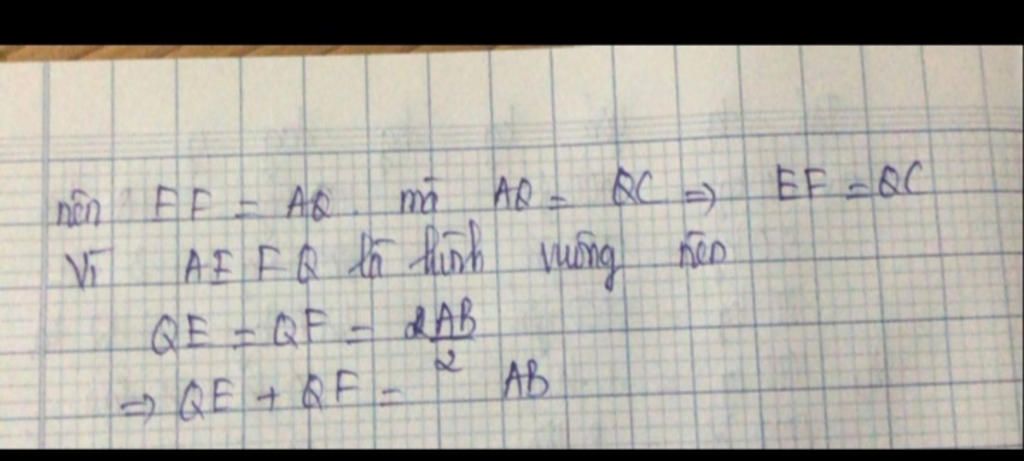 nên EF = AQ. mà AQ = QC => EF = QC
Vì AEFQ là hình vuông nên
QE = QF = 2AB/2
=> QE + QF = AB